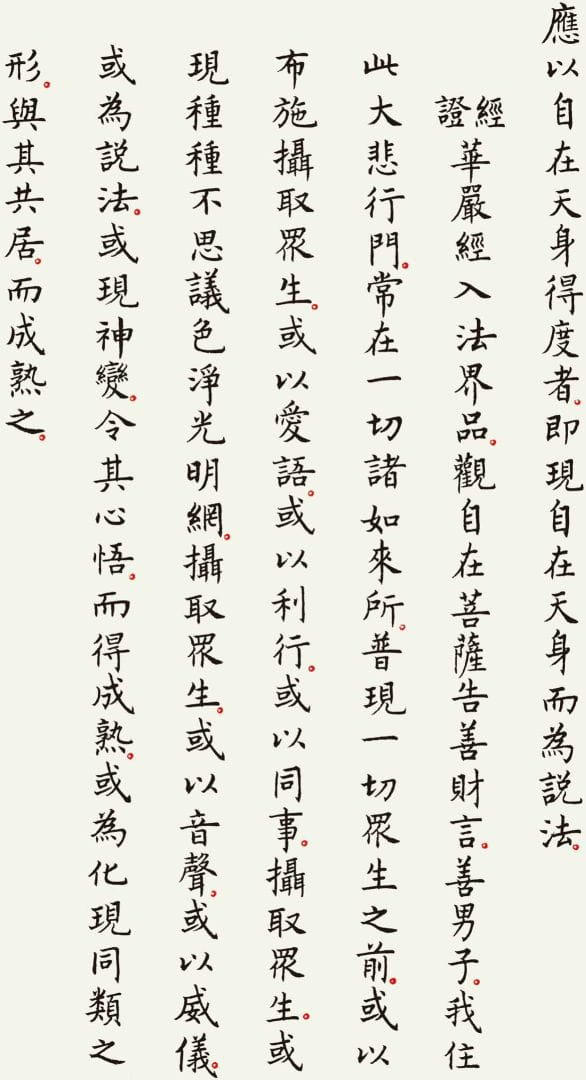 應以自在天身得度者。即現自在天身而為說法。
經證 華嚴經入法界品。觀自在菩薩告善財言。善男子。我住
此大悲行門。常在一切諸如來所。普現一切眾生之前。或以
布施攝取眾生。或以愛語。或以利行。或以同事。攝取眾生。或
現種種不思議色淨光明網。攝取眾生。或以音聲。或以威儀。
或為說法。或現神變。令其心悟。而得成熟。或為化現同類之
形。與其共居。而成熟之。